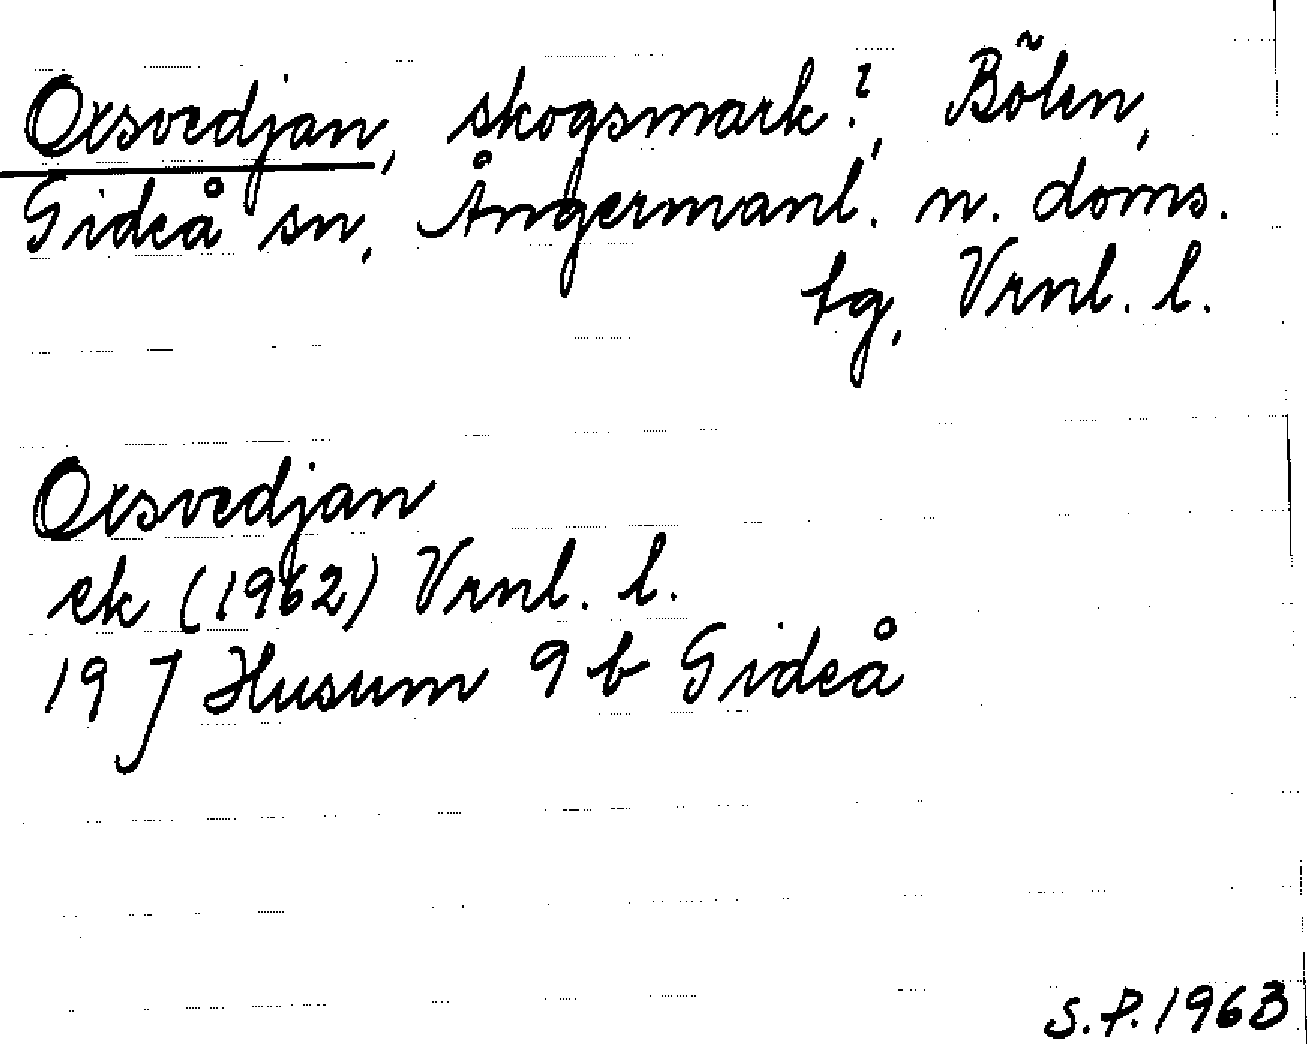 Oxsvedjan, skogsmark?, Bölen,
Gideå sn, Ångermanl. n. doms.
tg, Vrnl. l.
Oxsvedjan
ek (1962) Vrnl. l.
19 J Husum 9 b Gideå
S.P. 1963